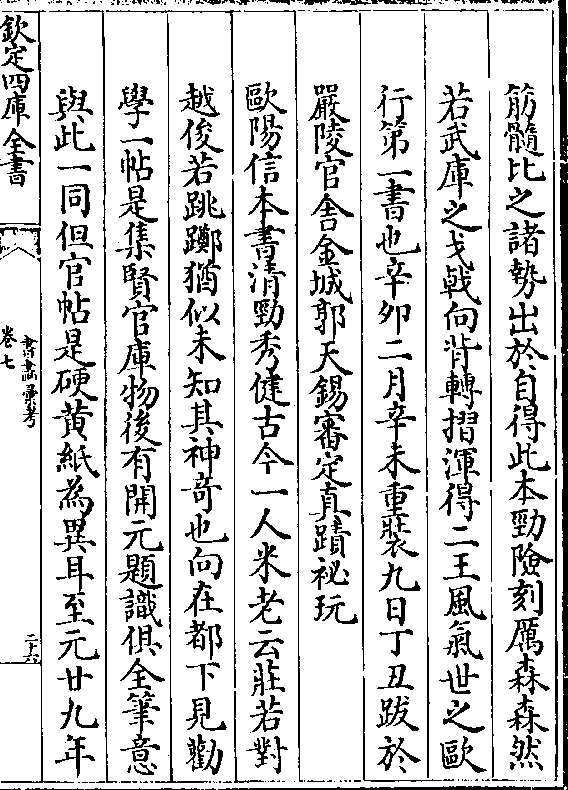 筋髓比之諸勢出於自得此本勁險刻厲森森然
若武庫之戈戟向背轉摺渾得二王風氣世之歐
行第一書也辛卯二月辛未重裝九日丁丑跋於
嚴陵官舍金城郭天錫審定真蹟祕玩
歐陽信本書清勁秀健古今一人米老云莊若對
越俊若跳躑猶似未知其神竒也向在都下見勸
學一帖是集賢官庫物後有開元題識俱全筆意
與此一同但官帖是硬黄紙為異耳至元廿九年
欽定四庫全書
書畫彙考
卷七
二十六